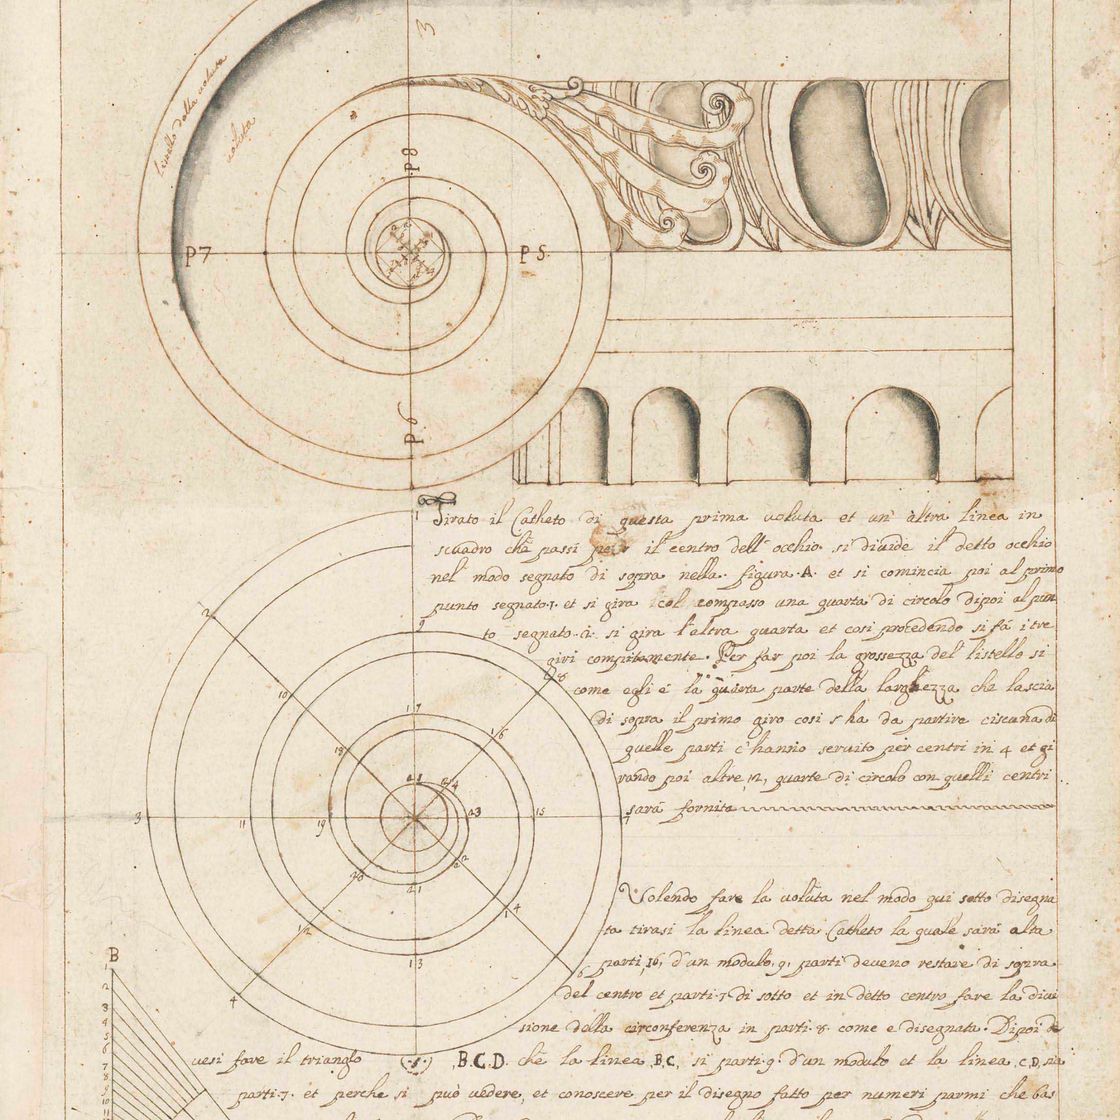 3
Listello della uoluta
uoluta
P 8
P 7
P 5.
P. 6
Tirato il Catheto di questa prima uoluta et un' altra linea in
squadro che passi per il centro dell' occhio. si diuide il detto occhio
nel modo segnato di sopra nella. figura. A. et si comincia poi al primo
punto segnato. 1. et si gira col compasso una quarta di circolo dipoi al pun
to segnato. 2. si gira l'altra quarta et cosi procedendo si fà i tre
giri compitamente. Per far poi la grossezza del listello si
come egli è la quarta parte della larghezza che lascia
di sopra il primo giro cosi s'ha da partire ciscuna di
quelle parti c'hanno seruito per centri in 4 et gi
rando poi altre 12, quarte di circolo con quelli centri
sarà fornita
1
2
9
8
10
17
16
18
25
24
3
11
19
23
15
7
20
21
22
12
14
13
4
6
.5.
Volendo fare la uoluta nel modo qui sotto disegna
ta tirasi la linea detta Catheto la quale sarà alta
parti 16, d'un modulo, 9, parti deueno restare di sopra
del centro et parti. 7 di sotto et in detto centro fare la diui
sione della circonferenza in parti. 8. come e disegnata. Dipoi de
uesi fare il trianglo B.C.D. che la linea B.C, si parti. 9. d'un modulo et la linea C.D, sia
parti. 7. et perche si può uedere, et conoscere per il disegno fatto per numeri parmi che bas
B
1
2
3
4
5
6
7
8
9
10
11